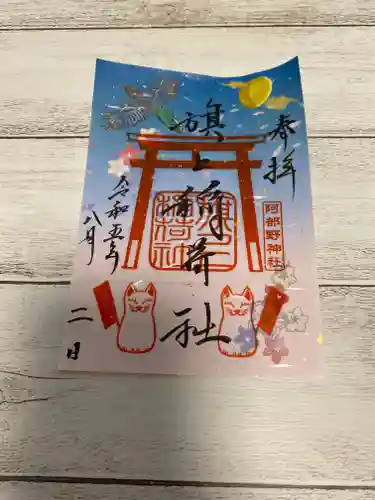 奉拝
阿部野神社
旗上稲荷社
旗上稲荷社
令和五年
八月
二日